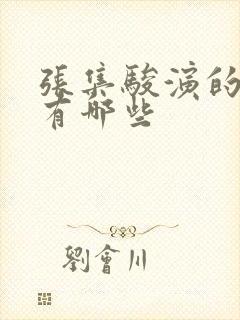 張集駿演的
有哪些
劉會川